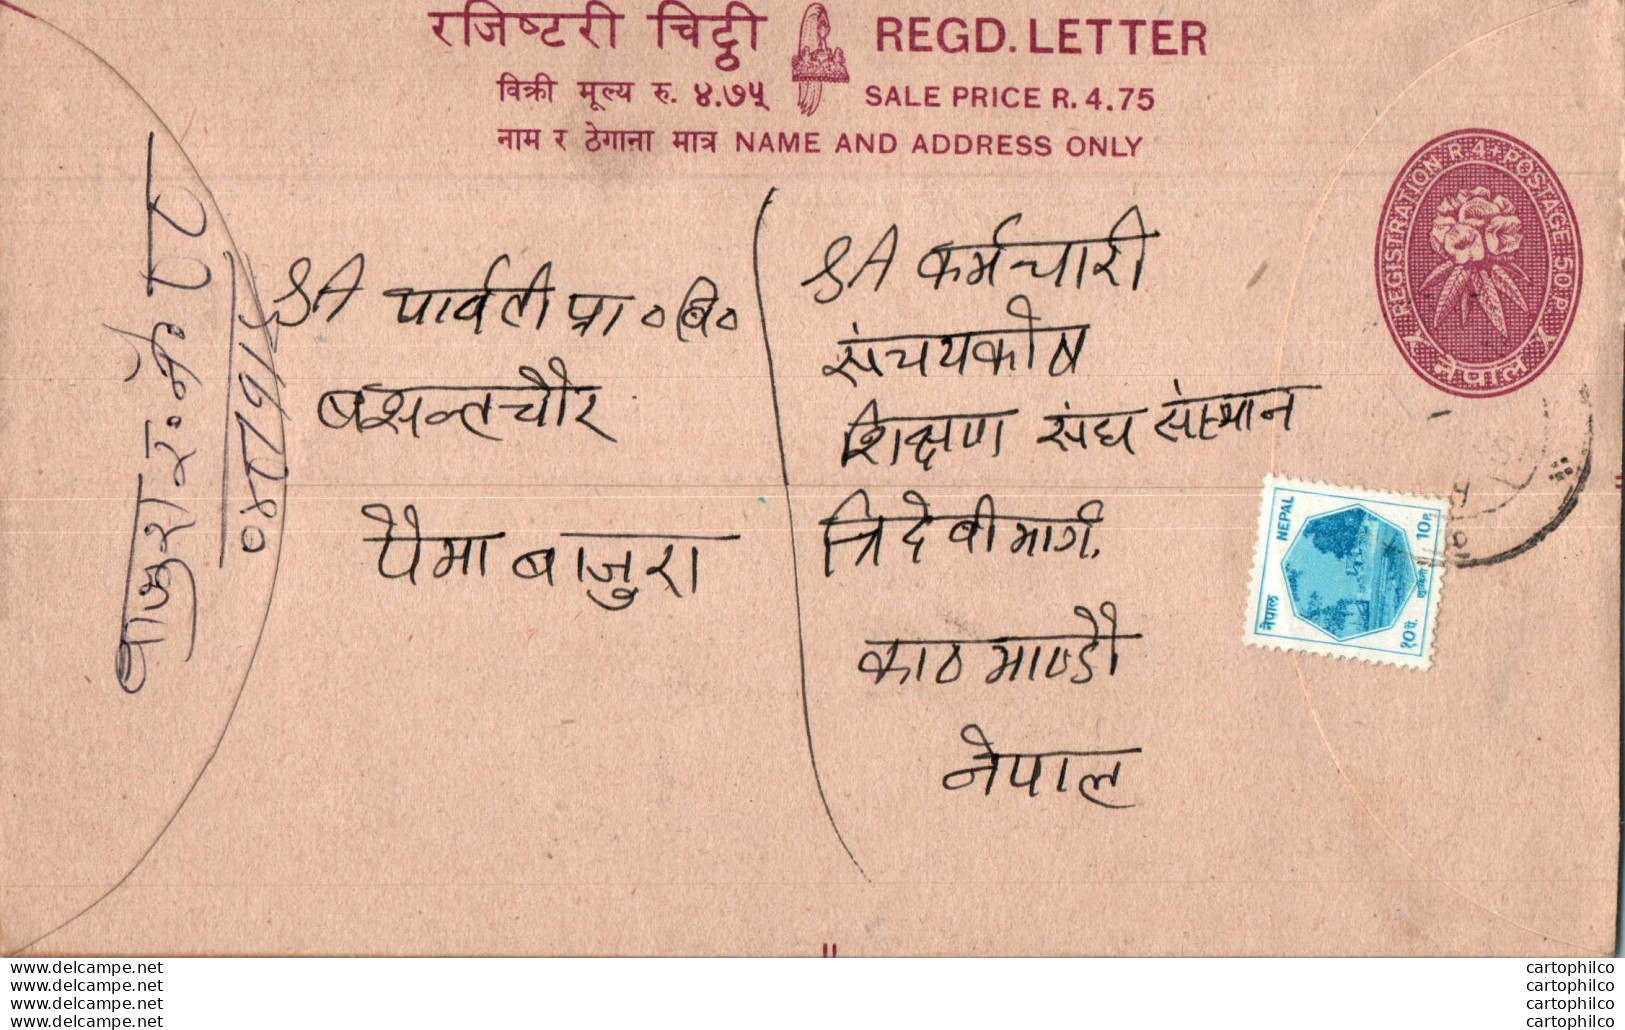 रजिष्टरी चिट्ठी REGD. LETTER
विक्री मूल्य रु. ४.७५ SALE PRICE R. 4.75
नाम र ठेगाना मात्र NAME AND ADDRESS ONLY
REGISTRATION R 4+POSTAGE 50 P.
नेपाल
बाजुरा र. नं. ९९
श्री पार्वती प्रा॰ बि॰
बसन्तचौर
पैमा बाजुरा
श्री कर्मचारी
संचयकोष
शिक्षण संघ संस्थान
त्रिदेबी मार्ग,
काठमाण्डौ
नेपाल
नेपाल NEPAL
१०पै. 10P.
लुम्बिनी
www.delcampe.net
www.delcampe.net
www.delcampe.net
www.delcampe.net
cartophilco
cartophilco
cartophilco
cartophilco